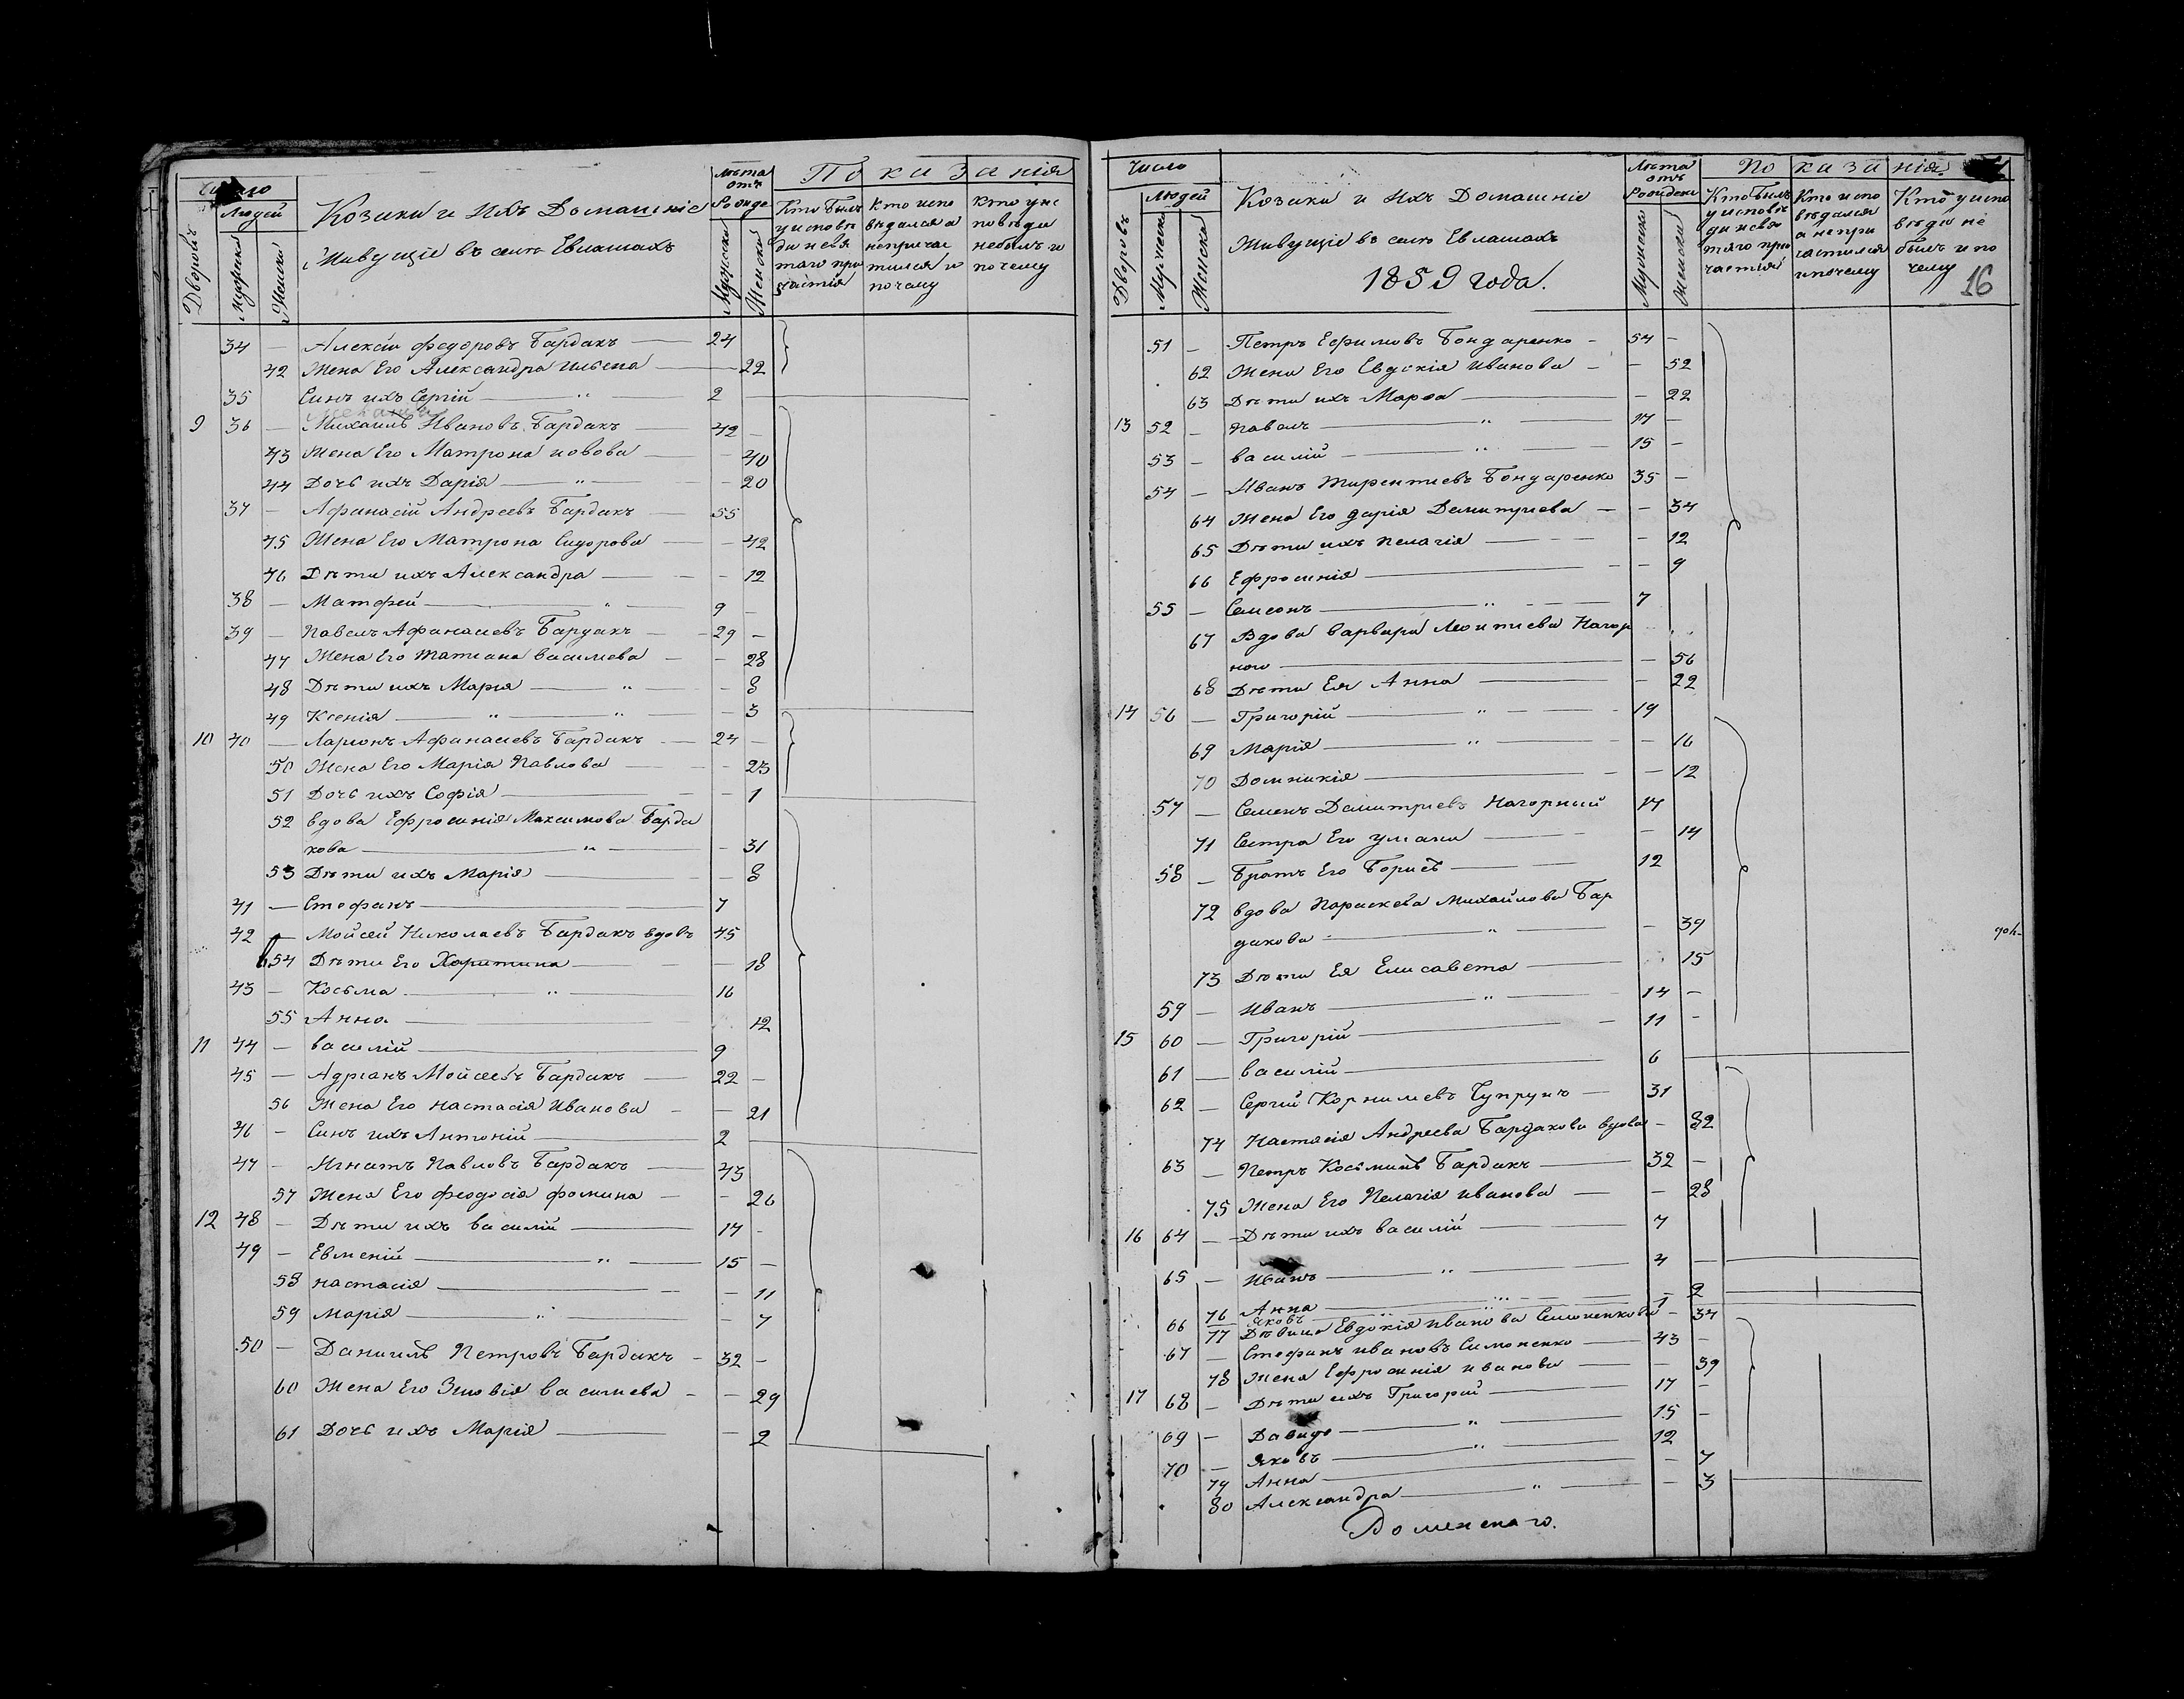 Число
Людей
Дворовъ
Мужска
Женска
Козаки и Ихъ Домашніе
Живущіе въ селѣ Евлашахъ
Лѣта отъ Рожде
Мужска
Женска
Показанія
Кто былъ у исповѣди и святаго причастія
Кто исповѣдался а непричастился и почему
Кто у исповѣди небылъ и почему
34 — Алексѣй Федоровъ Бардакъ — 24
42 Жена Его Александра Ильина — 22
35 Сынъ ихъ Сергій — " 2
9 36 — Михаилъ Ивановъ Бардакъ — 42 —
43 Жена Его Матрона Іовова — — 40
44 Дочь ихъ Дарія — " — — 20
37 — Афанасій Андреевъ Бардакъ — 55
45 Жена Его Матрона Сидорова — — 42
46 Дѣти ихъ Александра — — 12
38 — Матфей — " — 9 —
39 — Павелъ Афанасіевъ Бардакъ — 29 —
47 Жена Его Татиана Василиева — — 28
48 Дѣти ихъ Марія — " — 8
49 Ксенія — " — " — 3
10 40 — Ларіонъ Афанасіевъ Бардакъ — 24 —
50 Жена Его Марія Павлова — — 23
51 Дочь ихъ Софія — — 1
52 вдова Ефросинія Максимова Барда
кова — " — — 31
53 Дѣти ихъ Марія — — 8
41 — Стефанъ — 7
42 — Мойсей Николаевъ Бардакъ вдовъ 45
54 Дѣти Его Харитина — — 18
43 — Косьма — " — 16
55 Анна — 12
11 44 — василій — 9
45 — Адріанъ Мойсеевъ Бардакъ — 22 —
56 Жена Его Настасія Иванова — — 21
46 — Сынъ ихъ Антоній — 2
47 — Игнатъ Павловъ Бардакъ — 43
57 Жена Его Феодосія Фомина — — 26
12 48 — Дѣти ихъ василій — 17 —
49 — Евмений — " — 15 —
58 Настасія — — 11
59 Марія — " — — 7
50 — Даниилъ Петровъ Бардакъ — 32 —
60 Жена Его Зиновія василиева — — 29
61 Дочь ихъ Марія — — 2
Число
Людей
Дворовъ
Мужчска
Женска
Козаки и Ихъ Домашніе
Живущіе въ селѣ Евлашахъ
1859 года.
Лѣта отъ Рождени
Мужска
Женска
Показанія
Кто былъ у исповѣди и святаго причастія
Кто исповѣдался а непричастился и почему
Кто у исповѣди не былъ и почему
16
51 — Петръ Ефимовъ Бондаренко — 54 —
62 Жена Его Евдокія Иванова — — 52
63 Дѣти ихъ Марѳа — — 22
13 52 — Павелъ — " — 17 —
53 — василій — " — 15 —
54 — Иванъ Тирентиевъ Бондаренко 35 —
64 Жена Его Дарія Димитриева — — 34
65 Дѣти ихъ Пелагія — — 12
66 Ефросинія — — 9
55 — Самсонъ — " — 7
67 Вдова варвара Леонтиева Нагор
ного — — 56
68 Дѣти Ея Анна — — 22
14 56 — Григорій — " — 19
69 Марія — " — — 16
70 Домникія — — 12
57 — Семенъ Димитриевъ Нагорный 17
71 Сестра Его — — 14
58 — Братъ Его Борисъ — 12
72 вдова Параскева Михайлова Бар
дакова — " — — 39
73 Дѣти Ея Елисавета — 15
59 — Иванъ — " — 14 —
15 60 — Григорій — 11 —
61 — василій — 6
62 — Сергій Корнилиевъ Чупрунъ — 31
74 Настасія Андреева Бардакова вдова — 82
63 — Петръ Косьминъ Бардакъ — 32 —
75 Жена Его Пелагія Иванова — — 28
16 64 — Дѣти ихъ василій — 7
65 — Иванъ — " — 4 —
76 Анна — " — 2
66 — Яковъ — " — 1
77 Дѣвица Евдокія Иванова Симоненкова — 34
67 — Стефанъ Ивановъ Симоненко — 43 —
78 Жена Ефросинія Иванова — — 39
17 68 — Дѣти ихъ Григорій — 17 —
69 — Давидъ — " — 15 —
70 — Яковъ — " — 12
79 Анна — — 7
80 Александра — " — — 3